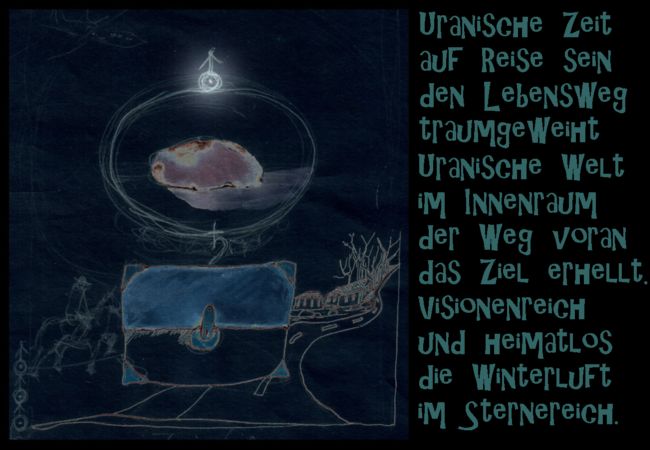 Uranische Zeit
auf Reise sein
den LebensWeg
traumgeWeiht
Uranische Welt
im Innenraum
der Weg voran
das Ziel erhellt.
Visionenreich
und heimatlos
die Winterluft
im Sternereich.